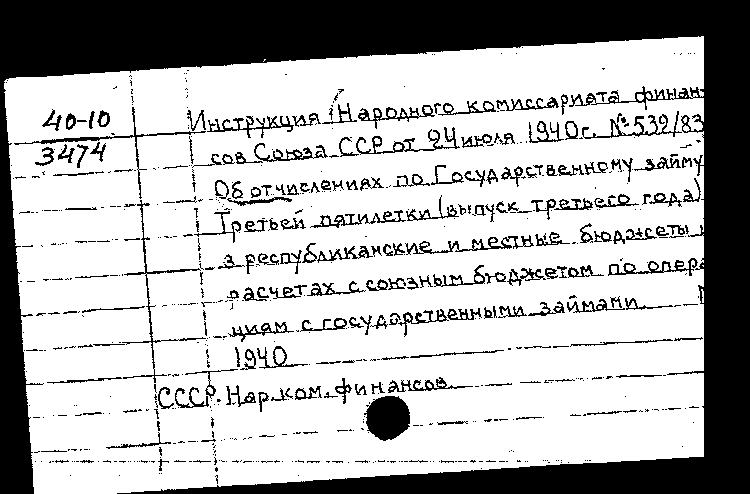 40-10
3474
Инструкция Народного комиссариата финан-
сов Союза ССР от 24 июля 1940г. № 539/83
Об отчислениях по Государственному займу
Третьей пятилетки (выпуск третьего года)
з республиканские и местные бюджеты
расчетах с союзным бюджетом по опера
циям с государственными займами.
1940
СССР. Нар. ком. финансов.